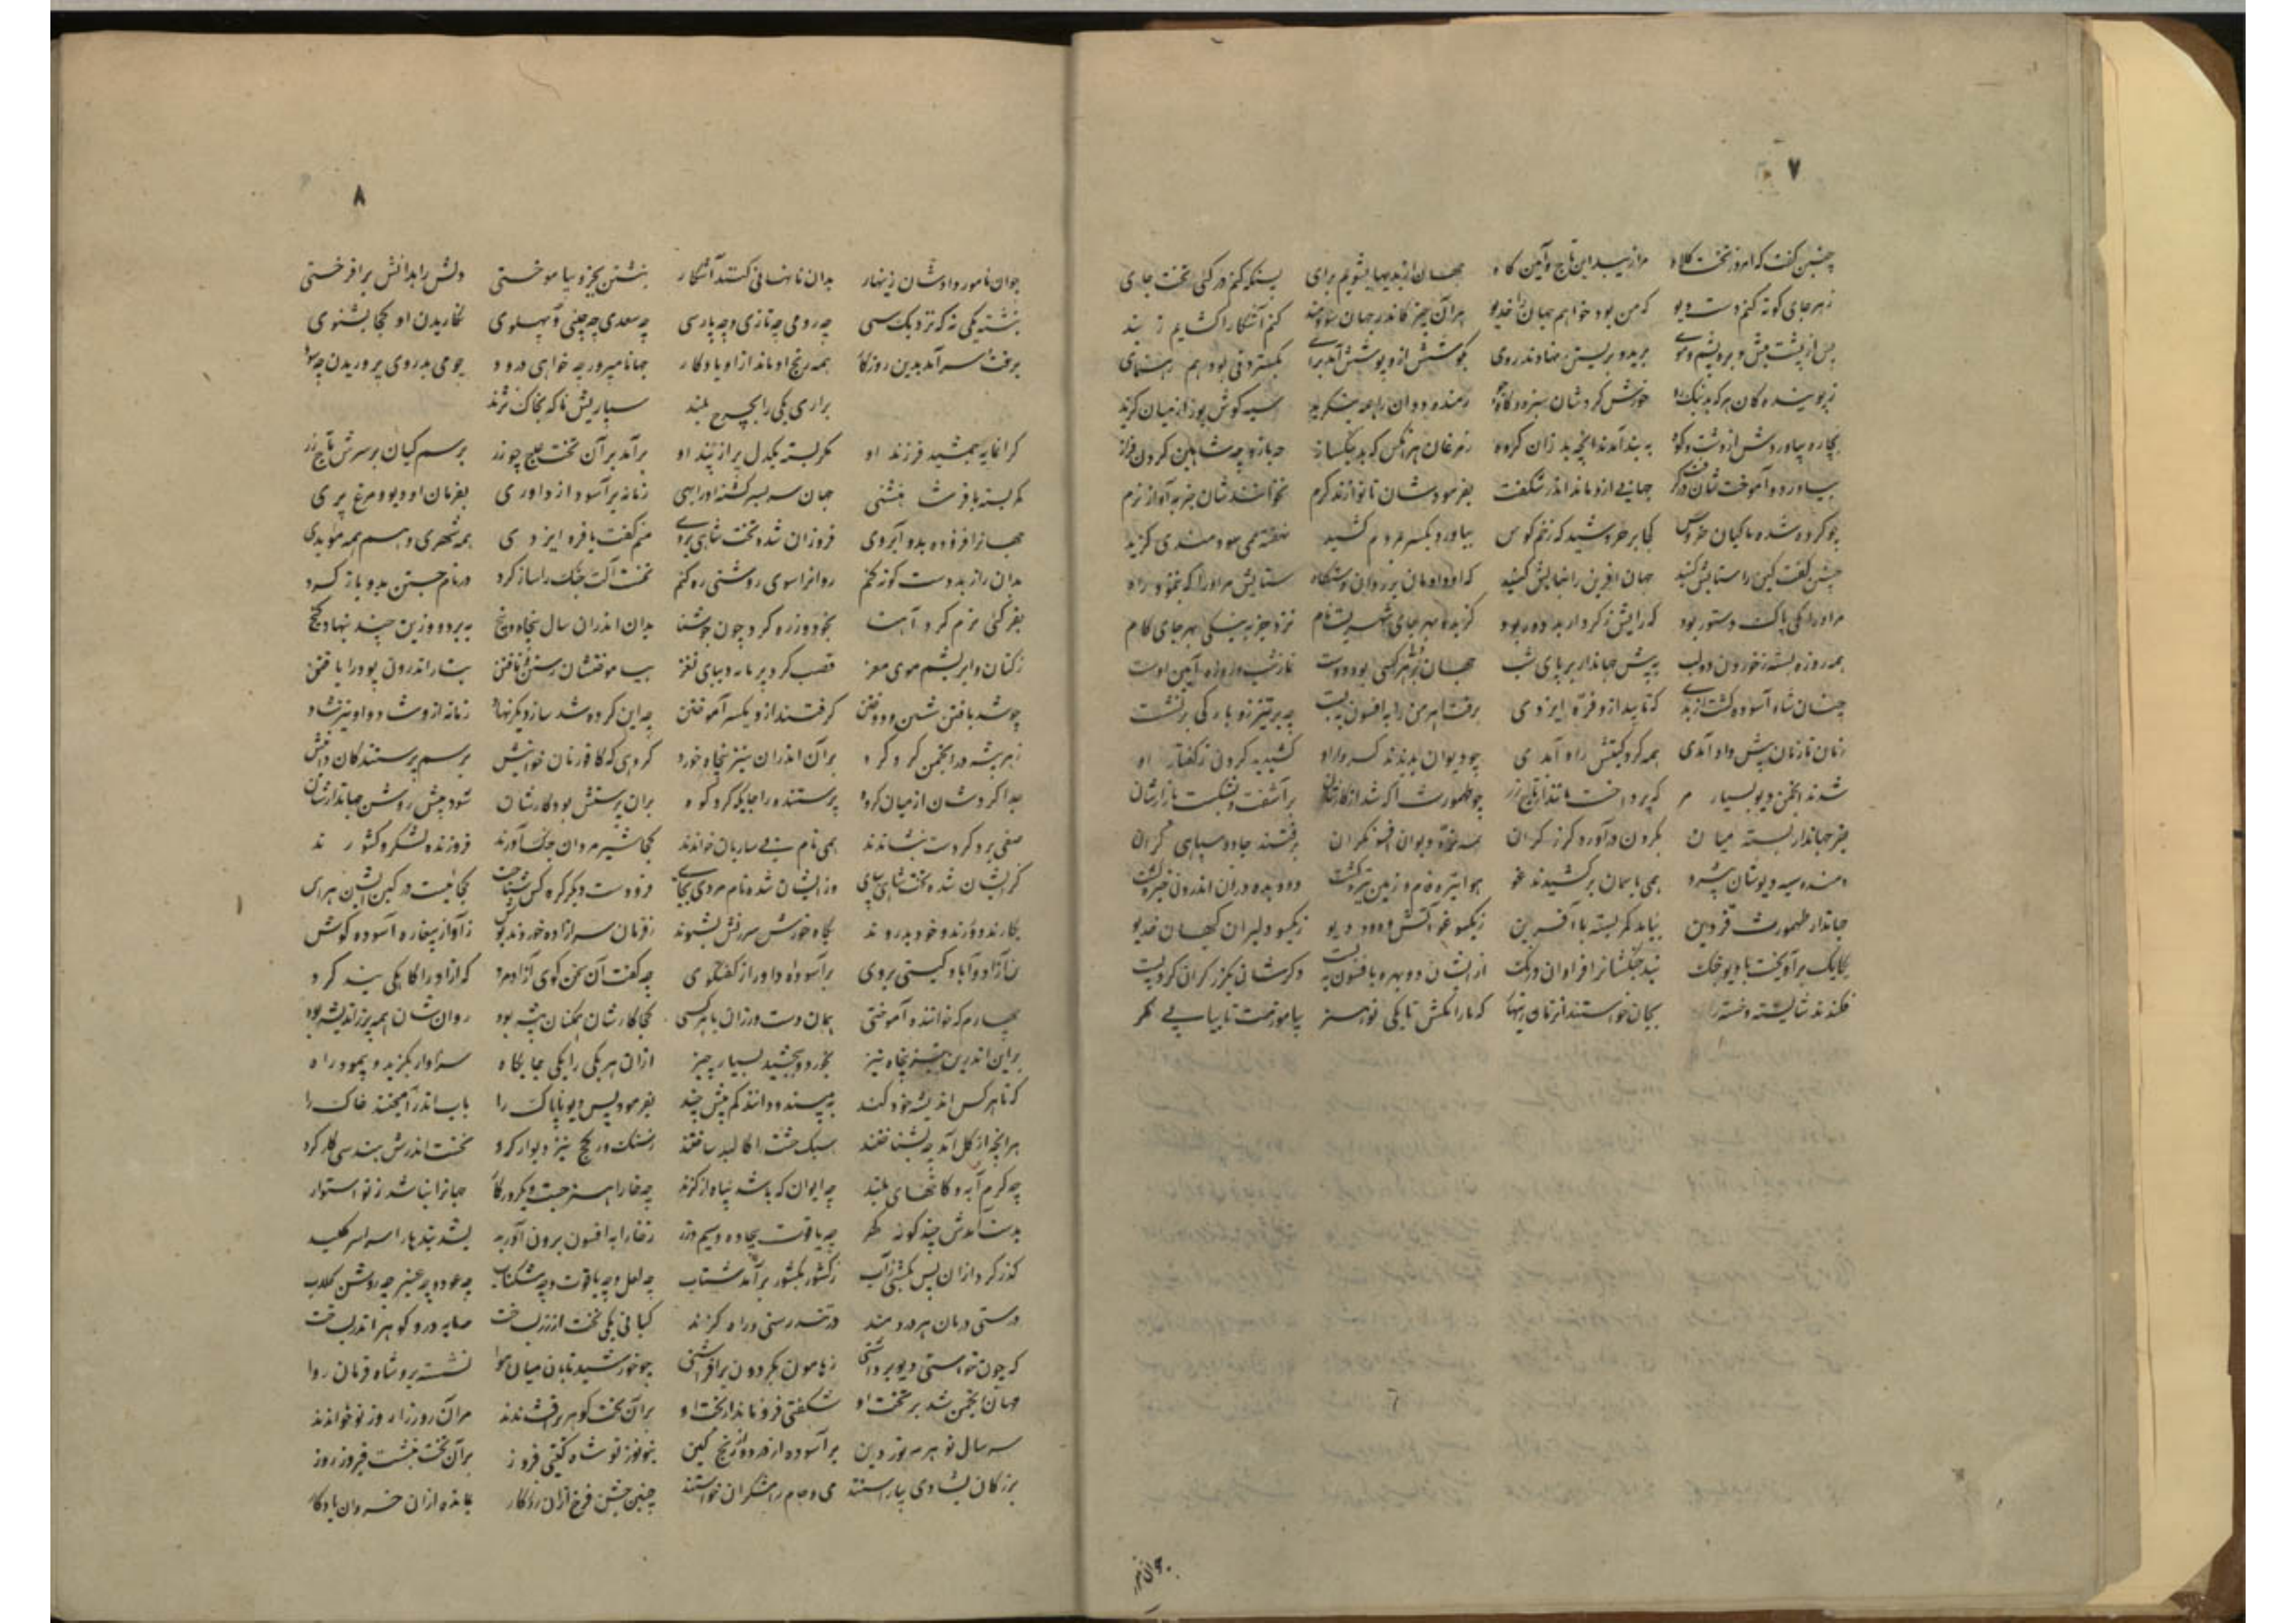 ۷
چنین گفت که امروز تخت و کلاه مرا زیبد این تاج و آیین گاه جهان از بدیها بشویم برای پس آنگه کنم در کیی تخت جای
زهر جای کوته کنم دست دیو که من بود خواهم جهان را خدیو هر آن چیز کاندر جهان سودمند کنم آشکارا کشایم ز بند
پس از پشت میش و بره پشم و موی برید و برشتن نهادند روی بکوشش ازو پوشش آمد برای بگستردنی بود هم رهنمای
ز پوینده کان هر که بد نیک رو خورش کردشان سبزه و کاه و جو رمنده ددان را همه بنگرید سیه گوش و یوز از میان گزید
بچاره بیاوردش از دشت و کوه به بند آمدند آنچه بد زان گروه ز مرغان هر آنکس که بد نیکساز چه باز و چه شاهین گردن فراز
بیاورد و آموختشان گرفت جهانی ازو ماند اندر شگفت بفرمودشان تا نوازند گرم نخوانندشان جز به آواز نرم
چو کرده شد ماکیان و خروس کجا بر خروشید که زخم کوس بیاورد یکسر بمردم کشید نهفته همی سودمندی گزید
چنین گفت کین را ستایش کنید جهان آفرین را نیایش کنید که او دادمان بر ددان دستگاه ستایش مر او را که بنمود راه
مر او را یکی پاک دستور بود که رایش ز کردار بد دور بود گزیده بهر جای شهرسپ نام نزد جز به نیکی بهر جای گام
همه روزه بسته ز خوردن دو لب به پیش جهاندار بر پای شب جهان هر کسی بود دوست نماز شب و روزه آیین اوست
چنان شاه آسوده گشت از بدی که تابید ازو فره ایزدی برفت اهرمن را به افسون ببست چو بر تیز رو بارگی بر نشست
زمان تا زمان پیش داد آمدی همه گرد گیتیش راه آمدی چو دیوان بدیدند کردار او کشیدند گردن ز گفتار او
شدند انجمن دیو بسیار مر که پردخت مانند ازو تاج زر چو طهمورث آگه شد از کارشان بر آشفت و بشکست بازارشان
بفر جهاندار بسته میان بگردن در آورد گرز گران همه نره دیوان افسونگران برفتند جادو سپاهی گران
دمنده سیه دیوشان پیشرو همی باسمان بر کشیدند غو هوا تیره فام و زمین تیره گشت دو دیده در آن اندرون خیره گشت
جهاندار طهمورث فر و دین بیامد کمر بسته با آفرین ز یکسو غو آتش و دود دیو ز یکسو دلیران کیهان خدیو
یکایک بر آویخت با دیو جنگ نبد جنگشانرا فراوان درنگ از ایشان دو بهره بافسون ببست دگرشان بگرز گران کرد پست
فکندند شایسته و خسته را بجان خواستند آنزمان زینهار که ما را مکش تا یکی نو هنر بیاموزمت تا بیابی ثمر
۸
جوان نامور دادشان زینهار بدان تا نهانی کنند آشکار نبشتن بخسرو بیاموختی دلش را بدانش بر افروختی
نبشته یکی نه که نزدیک سی چه رومی چه تازی و چه پارسی چه سغدی چه چینی و پهلوی نگاریدن او کجا بشنوی
برفت و سر آمد بدین روزگار همه رنج او ماند ازو یادگار جهانا مپرور چو خواهی درود چو می بدروی پروریدن چه سود
براری یکی را بچرخ بلند سپاریش ناگه بخاک نژند
گرانمایه جمشید فرزند او کمر بسته یکدل پر از پند او بر آمد بر آن تخت عاج چو زر برسم کیان بر سرش تاج زر
کمر بسته با فر شاهنشهی جهان سر بسر گشته او را رهی زمانه بر آسود از داوری بفرمان او دیو و مرغ و پری
جهانرا فزوده بدو آبروی فروزان شده تخت شاهی بروی منم گفت با فره ایزدی همم شهری و هم همه موبدی
بدان را ز بد دست کوته کنم روانرا سوی روشنی ره کنم نخست آلت جنگ را ساز کرد در نام جستن بدو باز کرد
بفر کیی نرم کرد آهنا چو خود و زره کرد و چون جوشنا بدان اندران سال پنجاه و پنج ببرد و وزین چند بنهاد گنج
ز کتان و ابریشم موی مغز قصب کرد پر مایه دیبای نغز بیاموختشان رشتن و تافتن بتار اندرون پود را بافتن
چو شد بافتن شستن و دوختن گرفتند ازو یکسر آموختن چه این کرده شد ساز دیگر نهاد زمانه ازو شاد و او نیز شاد
ز هر پیشه ور انجمن گرد کرد بر آن اندران نیز پنجاه خورد گروهی که کاتوزیان خوانیش برسم پرستندگان دانیش
جدا کردشان از میان گروه پرستنده را جایگه کرد کوه بدان پرستش بود کارشان نوان پیش روشن جهاندارشان
صفی بر دگر دست بنشاندند همی نام نیساریان خواندند کجا شیر مردان جنگ آورند فروزنده لشکر و کشورند
کزیشان شده تخت شاهی بپای وز ایشان شده نام مردی بجای
بکارند و ورزند و خود بدروند بگاه خورش سرزنش نشنوند ز فرمان سر آزاده خود ژنده پوش ز آواز بیغاره آسوده گوش
تن آزاد و آباد گیتی بروی بر آسوده داور از گفتگوی چه گفت آن سخن گوی آزاد مرد که آزاد را کاهلی بنده کرد
چهارم که خوانند آهنوخشی همان دست ورزان با سرکشی کجا کارشان همگنان پیشه بود روانشان همه پر ز اندیشه بود
بر این اندرین نیز پنجاه نیز بخورد و ببخشید بسیار چیز ازان هر یکی را یکی جایگاه سزاوار بگزید و بنمود راه
که تا هر کس اندیشه خود کند به بیند و دانند کم بیش چند بفرمود پس دیو ناپاک را بآب اندر آمیختند خاک را
هر آنچه از گل آمد چو بشناختند سبک خشت را کالبد ساختند ز سنگ و ز گچ نیز دیوار کرد نخست اندرش هندسی کار کرد
چه گرمابه و کاخهای بلند چه ایوان که باشد پناه از گزند
بدست آمدش چند گونه گهر چه یاقوت بیجاده و سیم و زر ز خارا به افسون برون آورید شد بندها را سراسر کلید
گذر کرد ازان پس بکشتی بر آب ز کشور بکشور بر آمد شتاب چه عود و چه عنبر چه روشن گلاب
درستی درمان هر دردمند در تندرستی و راه گزند کیانی یکی تخت از زر بساخت چه مایه درو گوهر اندر بساخت
که چون خواستی دیو برداشتی ز هامون بگردون بر افراشتی چو خورشید تابان میان هوا نشسته برو شاه فرمان روا
جهان انجمن شد بر تخت او شگفتی فرو مانده از بخت او بر آن تخت گوهر بر افشاندند مر آن روز را روز نو خواندند
سر سال نو هرمز فوردین بر آسوده از درد و رنج و کین بنوروز نو شاه گیتی فروز بر آن تخت بنشست فیروز روز
بزرگان بشادی بیاراستند می و جام و رامشگران خواستند چنین جشن فرخ ازان روزگار بمانده ازان خسروان یادگار